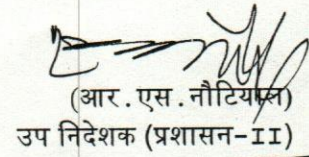 (आर.एस.नौटियाल)
उप निदेशक (प्रशासन-II)